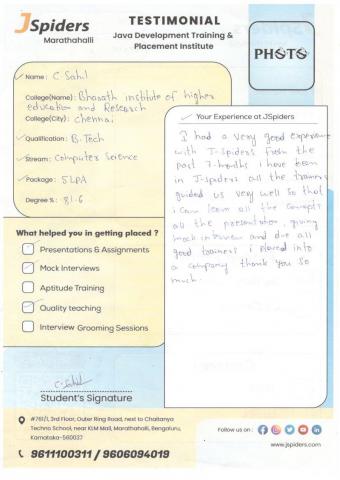 JSpiders
Marathahalli
TESTIMONIAL
Java Development Training &
Placement Institute
PHOTO
Name : C Sahil
College(Name) : Bharath institute of higher
education and Research
College(City) : chennai
Qualification : B.Tech
Stream : Computer Science
Package : 5 LPA
Degree % : 81.6
Your Experience at JSpiders
I had a very good experience
with J-spiders from the
past 7-months i have been
in J-spiders all the trainers
guided us very well so that
i can learn all the concepts
all the presentation, giving
mock interview and due all
good trainers i placed into
a company thank you so
much.
What helped you in getting placed ?
Presentations & Assignments
Mock Interviews
Aptitude Training
Quality teaching
Interview Grooming Sessions
C.Sahil
Student's Signature
#761/1, 3rd Floor, Outer Ring Road, next to Chaitanya
Techno School, near KLM Mall, Marathahalli, Bengaluru,
Karnataka-560037
9611100311 / 9606094019
Follow us on :
www.jspiders.com